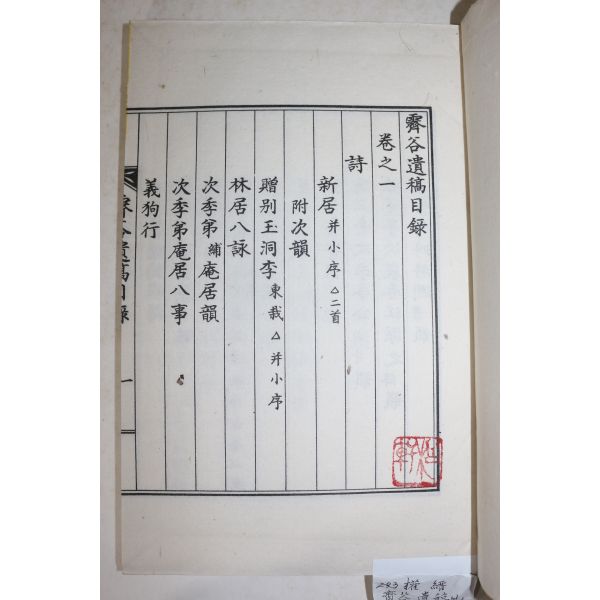 霽谷遺稿目錄
卷之一
詩
新居 并小序 △二首
附次韻
贈別玉洞李 東哉 △并小序
林居八詠
次季弟 䌤 庵居韻
次季弟庵居八事
義狗行
霽谷遺稿目錄 一
243 權 縉